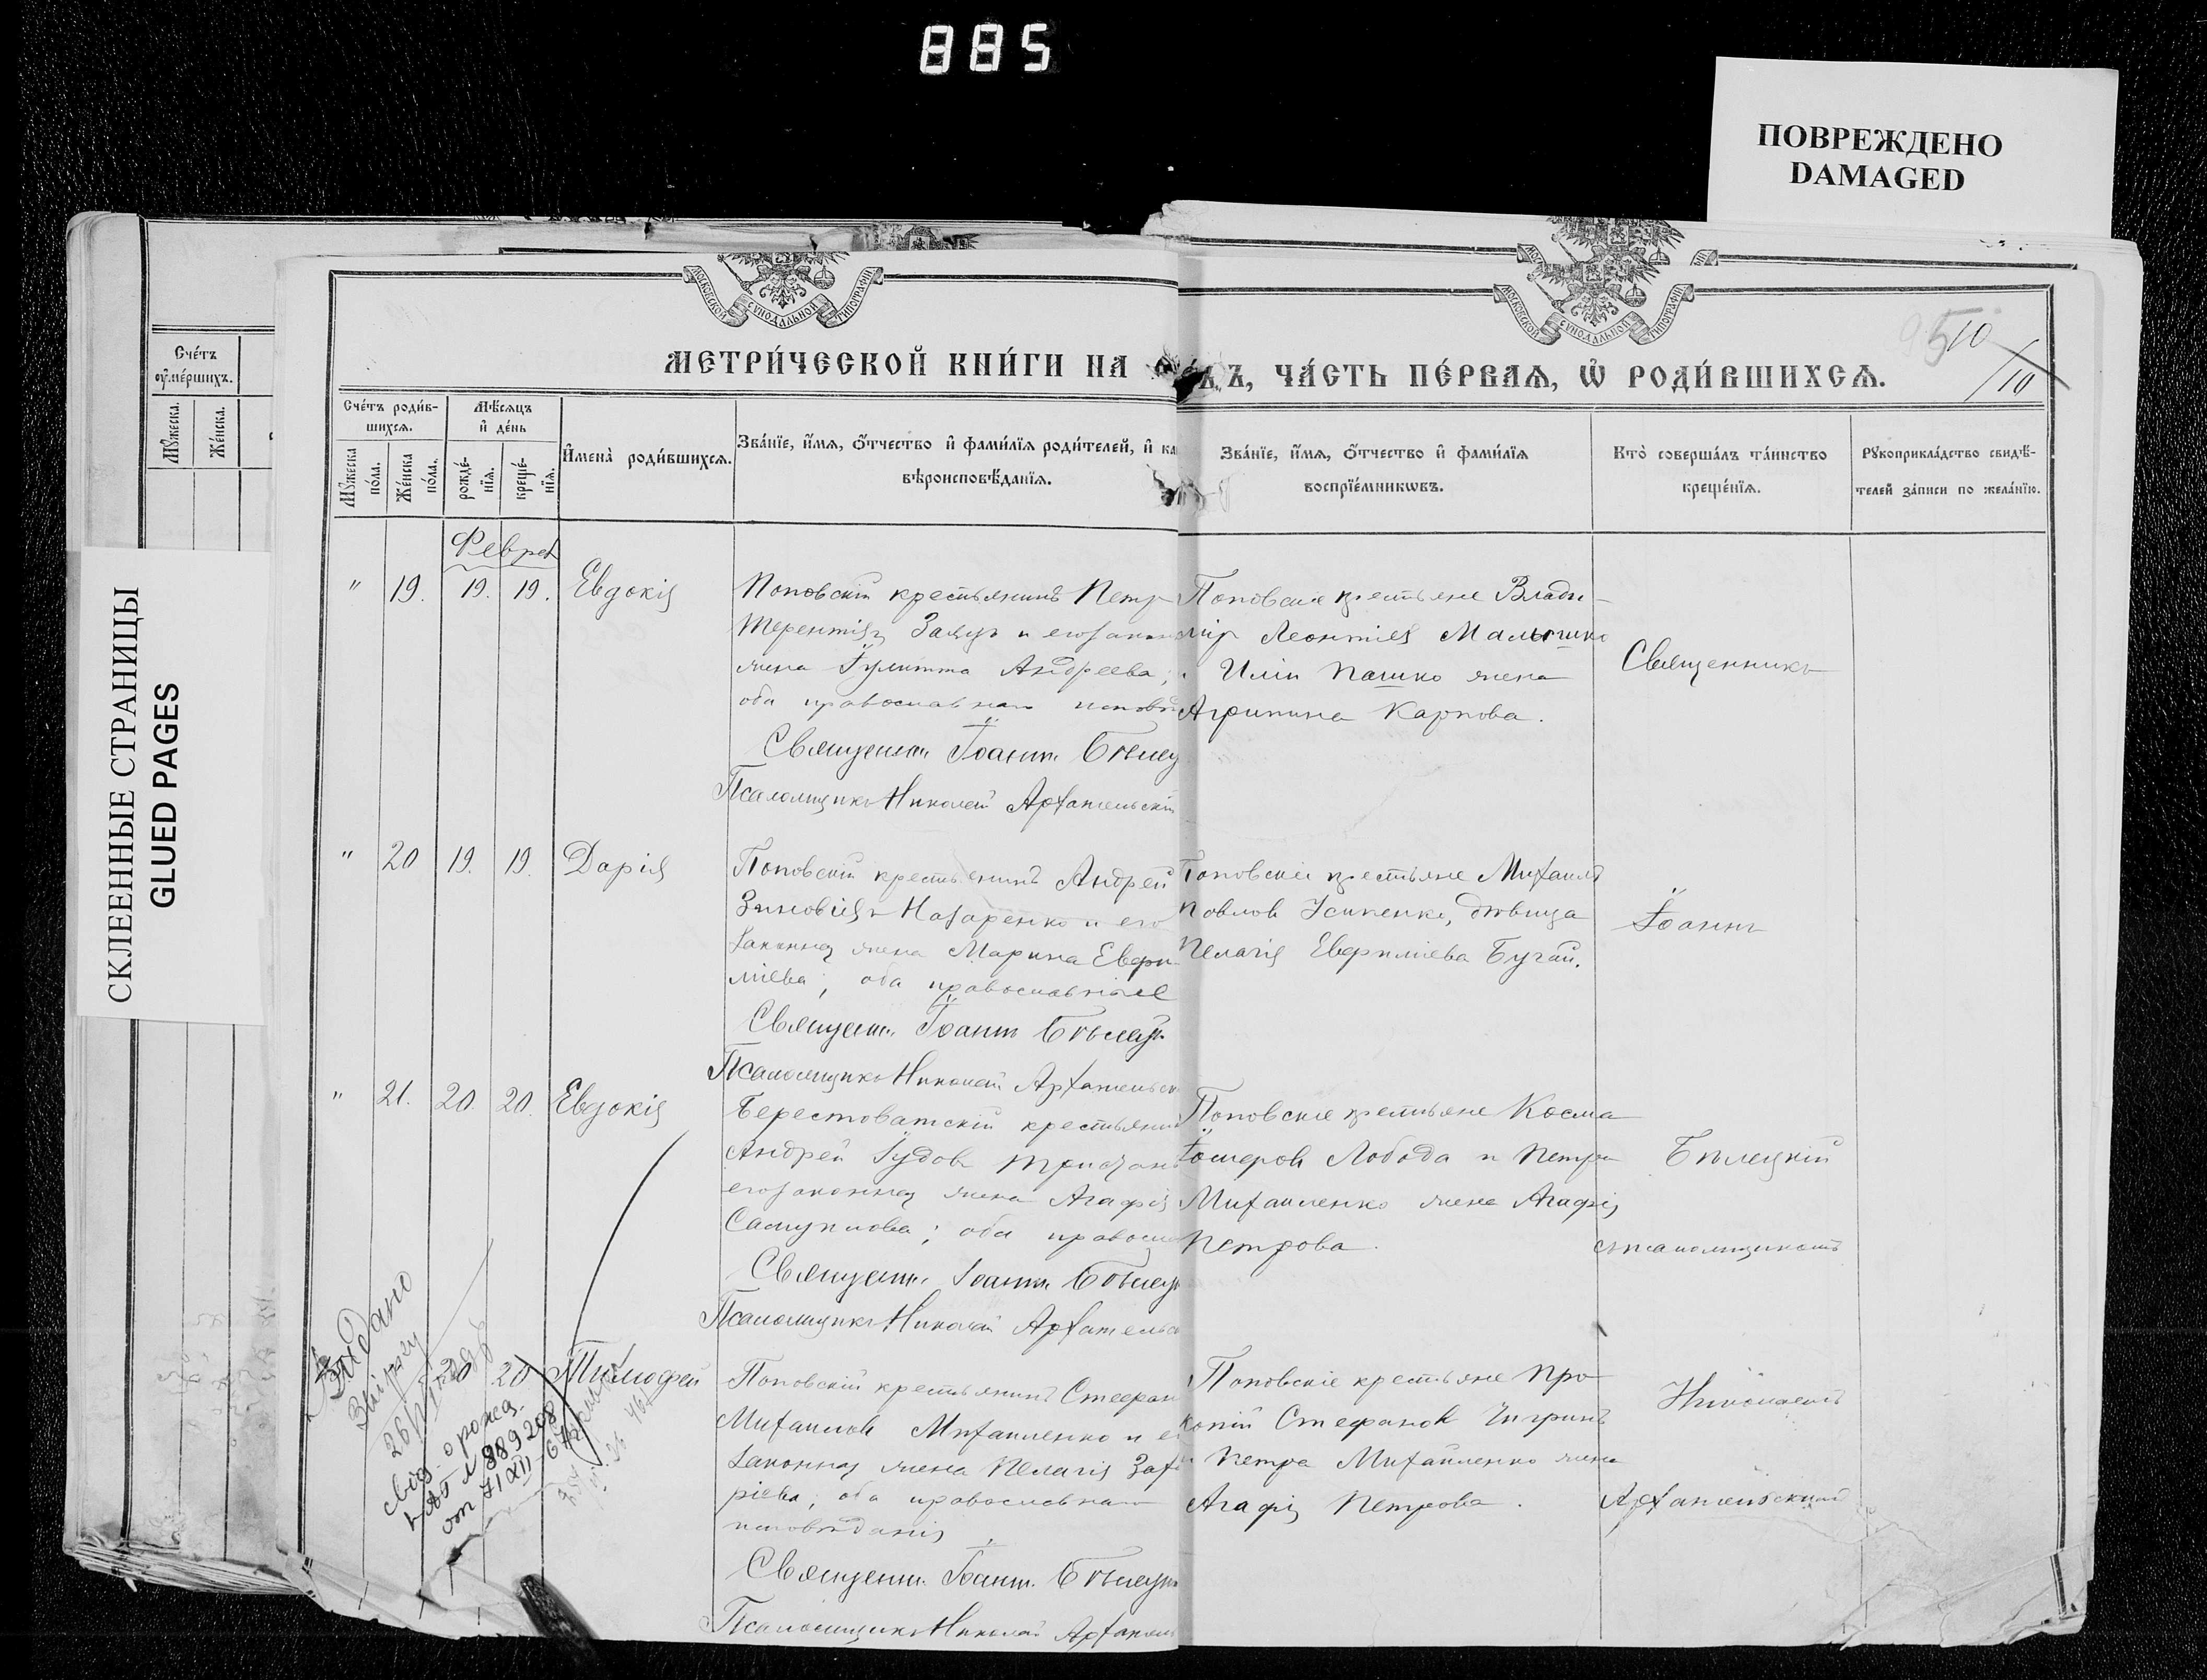 885
ПОВРЕЖДЕНО
DAMAGED
СКЛЕЕННЫЕ СТРАНИЦЫ
GLUED PAGES
Сче́тъ
оу҆ме́ршихъ.
Мꙋ́жеска.
Же́нска.
МОСКОВСКОЙ СѴНОДАЛЬНОЙ ТИПОГРАФІИ
МОСКОВСКОЙ СѴНОДАЛЬНОЙ ТИПОГРАФІИ
МЕТРИ́ЧЕСКОЙ КНИ́ГИ НА
Ъ, ЧА́СТЬ ПЕ́РВАѦ, Ѡ҆ РОДИ́ВШИХСѦ.
10
10
Сче́тъ роди́в-
шихсѧ.
Мѣ́сѧцъ
и҆ де́нь
Мꙋ́жеска по́ла.
Же́нска по́ла.
рожде́-нїѧ.
креще́-нїѧ.
И҆мена̀ роди́вшихсѧ.
Зва́нїе, и҆́мѧ, ѻ҆́тчество и҆ фами́лїѧ роди́телей, и҆ ка
вѣроисповѣ́данїѧ.
Зва́нїе, и҆́мѧ, ѻ҆́тчество и҆ фами́лїѧ
воспрїе́мникѡвъ.
Кто̀ соверша́лъ та́инство
креще́нїѧ.
Рꙋкоприкла́дство свидѣ́-
телей за́писи по жела́нїю.
Феврал
" 19. 19. 19. Евдокія
Поповскій крестьянинъ Петр
Терентіевъ Заяцъ и его закон
жена Іулитта Андреева;
оба православнаго исповѣд
Священникъ Іоаннъ Бѣлец
Псаломщикъ Николай Архангельскій
Поповскіе крестьяне Влади-
міръ Леонтіевъ Малышко
и Иліи Пашко жена
Агрипина Карпова.
Священникъ
" 20 19. 19. Дарія
Поповскій крестьянинъ Андрей
Зиновіевъ Назаренко и его
законная жена Марина Евфи-
міева; оба православные
Священн. Іоаннъ Бѣлецк
Псаломщикъ Николай Архангельск
Поповскіе крестьяне Михаилъ
Павловъ Усипенко, дѣвица
Пелагія Евфиміева Бугай.
Іоаннъ
" 21. 20. 20. Евдокія
Берестоватскій крестьянин
Андрей Іудовъ
его законная жена Агафія
Самуилова; оба правосл
Священн. Іоаннъ Бѣлецк
Псаломщикъ Николай Архангельс
Поповскіе крестьяне Косма
Лобода и Петра
Михайленко жена Агафія
Петрова.
Бѣлецкій
съ псаломщикомъ
20 20 Тимофей
Поповскій крестьянинъ Стефан
Михаиловъ Михайленко и е
законная жена Пелагія Заха
ріева; оба православнаго
исповѣданія
Священн. Іоанн. Бѣлецк
Псаломщикъ Николай Архангель
Поповскіе крестьяне Про-
копій Стефановъ Чигринъ
и Петра Михайленко жена
Агафія Петрова.
Николаемъ
Архангельскимъ
Видано
свід. о рожд.